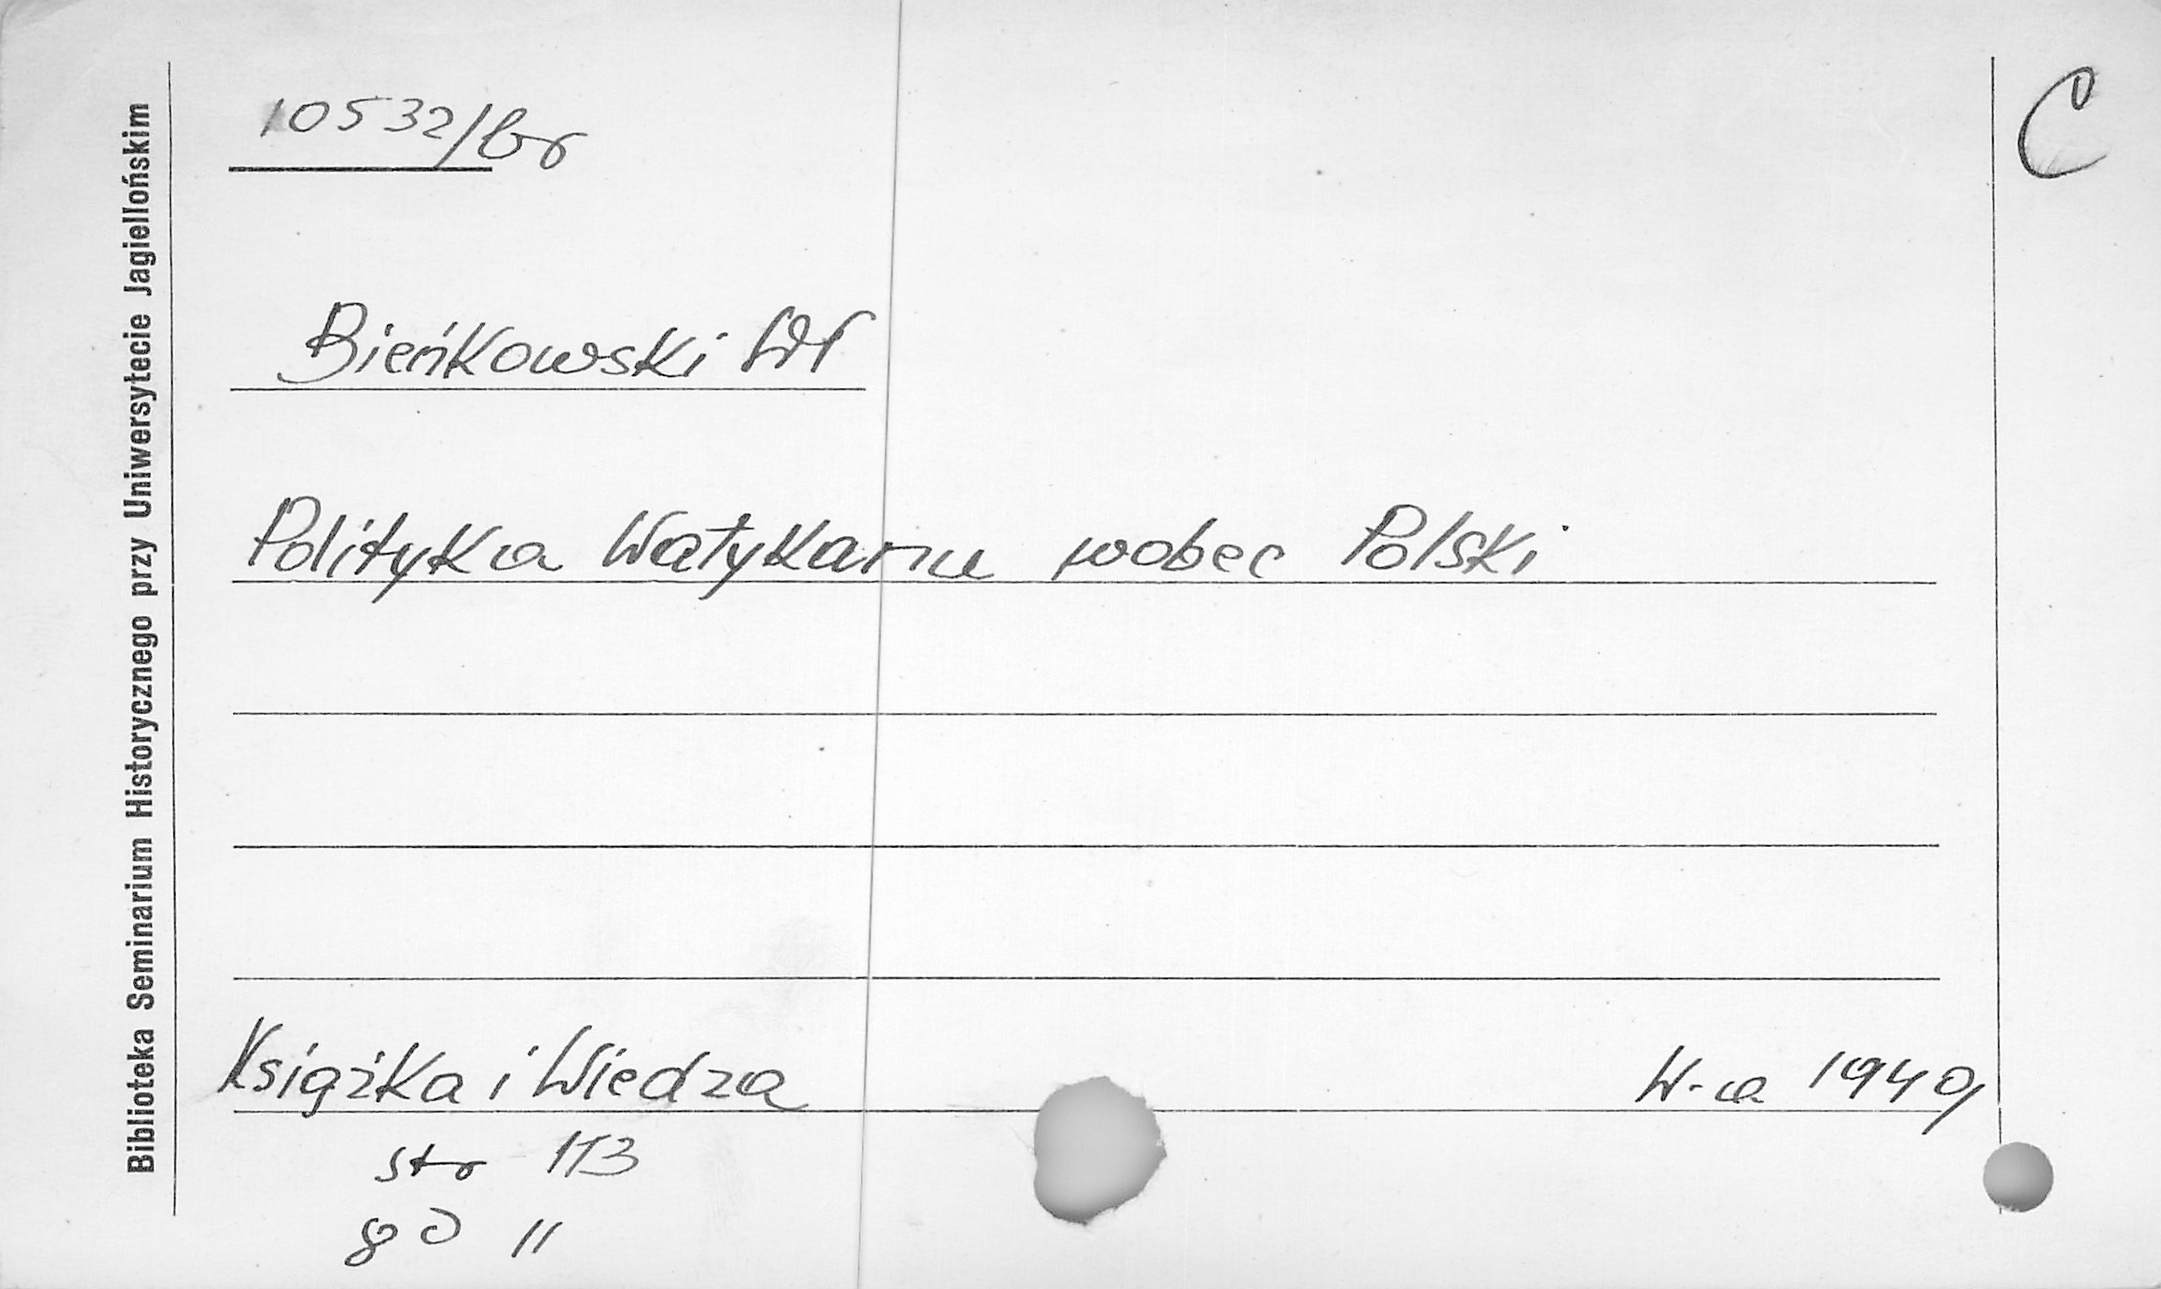 10532/br
C
Bieńkowski Wł
Polityka Watykanu wobec Polski
Książka i Wiedza W-wa 1949
str 113
8° II
Biblioteka Seminarium Historycznego przy Uniwersytecie Jagiellońskim